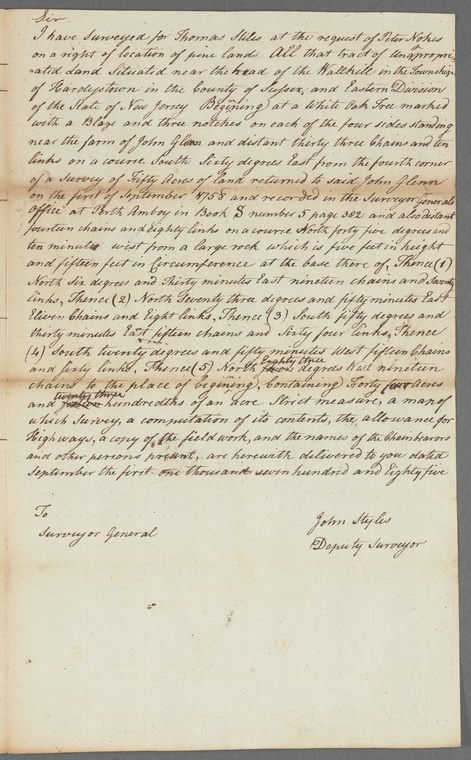 Sir
I have Surveyed for Thomas Stiles at the request of Peter Nokes
on a right of location of pine land All that tract of unapropri-
ated Land Situated near the head of the Wallkill in the Township
of Hardystown in the County of Sussex, and Eastern Division
of the State of New Jersey Begining at a White Oak Tree marked
with a Blaze and three notches on each of the four sides standing
near the farm of John Glenn and distant thirty three Chains and ten
links on a course South Sixty degrees East from the fourth corner
of a Survey of Fifty Acres of Land returned to said John Glenn
on the first of September 1758 and recorded in the Surveyor generals
Office at Perth Amboy in Book S number 5 page 392 and also distant
fourteen chains and Eighty links on a course North forty five degrees and
ten minutes west from a large rock which is five feet in height
and fifteen feet in Circumference at the base there of, Thence (1)
North Six degrees and Thirty minutes East nineteen chains and Seventy
links, Thence (2) North Seventy three degrees and fifty minutes East
Eleven Chains and Eight links, Thence (3) South fifty degrees and
thirty minutes East fifteen chains and Sixty four links, Thence
(4) South twenty degrees and fifty minutes West fifteen Chains
and sixty links, Thence (5) North Eighty three degrees West nineteen
chains to the place of begining, Containing Forty four Acres
and twenty three hundredths of an acre Strict measure, a map of
which Survey, a computation of its contents, the allowance for
Highways, a copy of the field work, and the names of the Chainbearors
and other persons present, are herewith delivered to you dated
September the first one thousand seven hundred and Eighty five
To
Surveyor General
John Styles
Deputy Surveyor